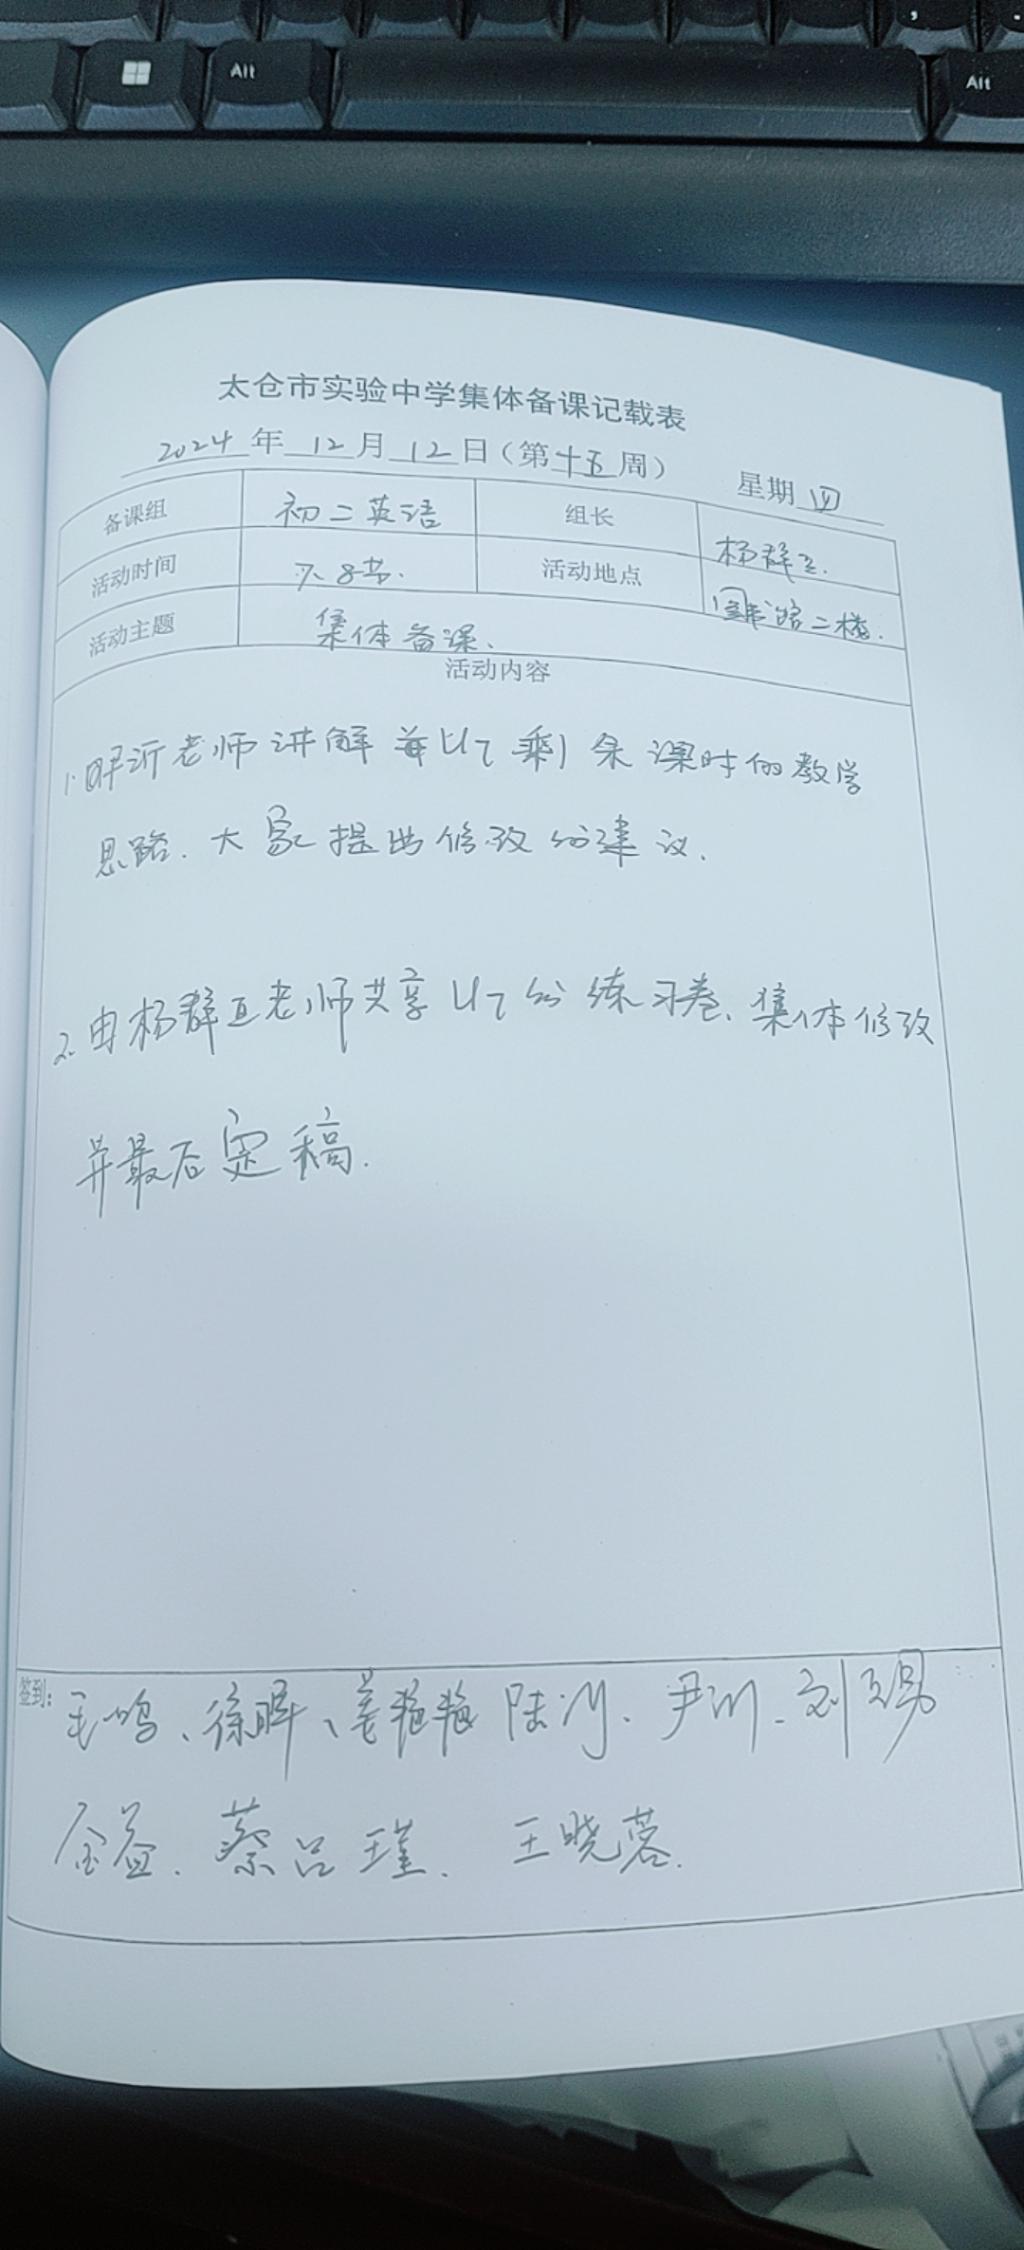 Alt
Alt
太仓市实验中学集体备课记载表
2024年12月12日（第十五周） 星期四
备课组 初二英语 组长 杨群亚.
活动时间 7、8节. 活动地点 二楼.
活动主题 集体备课、
活动内容
1. 老师讲解 U7 剩余课时的教学
思路. 大家提出修改的建议.
2. 由杨群亚老师共享U7的练习卷、集体修改
并最后定稿.
签到: 毛鸣、徐晖、姜艳艳 陆 、尹 、刘
金益、蔡吕瑾、王晓蓉.